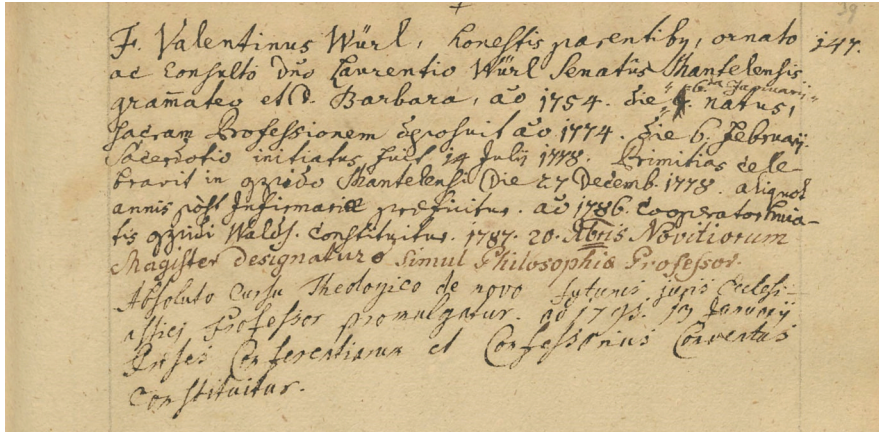 39
F. Valentinus Würl, honestis parentiby, ornato 147.
ac Consulto Dno Laurentio Würl Senatûs Thantelensis
gram̄ateo et D. Barbara, aō 1754. die 6.ta Januarii natus,
sacram Professionem deposuit aō 1774. die 6. Februarij.
Sacerdotio initiatus fuit 14 Julij 1778. Primitias cele-
bravit in Thantelensi Die 27 Decemb. 1778. aliquot
annis post Infirmariæ præficitur. aō 1786. Cooperator huia-
tis Walds. Constituitur. 1787. 20. Novitiorum
Magister Designatur simul Philosophiæ Professor.
Absoluto Cursu Theologico de novo juris Ecclesi-
astici Professor promulgatur. aō Januarij
Præses Conferentiarum et Confessarius Conventus
Constituitur.